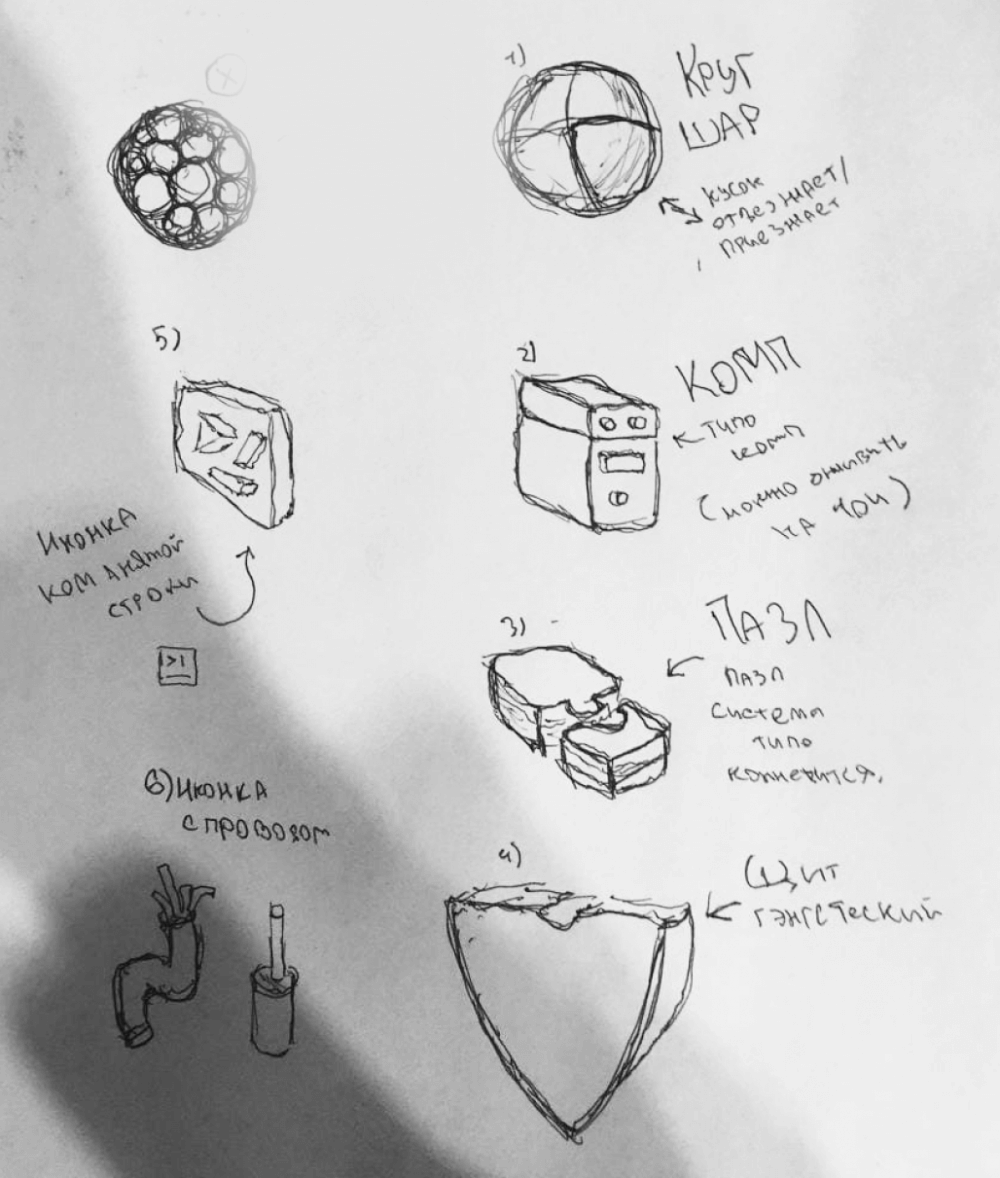 1)
Круг
ШАР
кусок
отъезжает/
приезжает
5)
2)
КОМП
типо
комп
(можно оживить
на
Иконка
командной
строки
>_
3)
ПАЗЛ
пазл
система
типо
коннектится.
6) Иконка
с проводом
4)
Щит
гэнгстеский